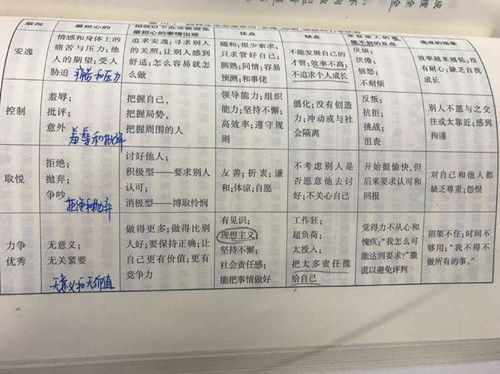 取向
最担心的
最担心的事情出现
优点
缺点
造成的结果
安逸
情感和身体上的
痛苦与压力;他
人的期望;受人
胁迫 痛苦和压力
追求安逸,寻求别人
的关照;让别人感到
舒适;怎么容易就怎
么做
随和;很少索求;
只求管好自己;
圆熟;同情;容易
预测;和事佬
不能发展自己的
才智;效率不高;
不追求个人成长
厌倦;
恼怒;
不耐烦
效率越来越低;没
有耐心;缺乏自我
成长
控制
羞辱;
批评;
意外 羞辱和批评
把握自己,
把握局势,
把握周围的人
领导能力;组织
能力;坚持不懈;
高效率;遵守规
则
僵化;没有创造
力;冲动或与社
会隔离
反叛;
抗拒;
挑战;
沮丧
别人不愿与之交
往或太靠近;感到
拘谨
取悦
拒绝;
抛弃;
争吵 拒绝和抛弃
讨好他人;
积极型——要求别人
认可;
消极型——博取怜悯
友善;折衷;谦
和;体谅;自愿
不考虑别人是
否愿意他去讨
好;不关心自己
开始挺愉快,但
后来要求认可和
回报
对自己和他人都
缺乏尊重;怨恨
力争
优秀
无意义;
无关紧要
无意义和无价值
做得更多;做得比别
人好;要保持正确;让
自己更有价值;更有
竞争力
有见识;
理想主义;
坚持不懈;
社会责任感;
能把事情做好
工作狂;
超负荷;
太投入;
把太多责任揽
给自己
觉得力不从心和
愧疚;“我怎么可
能达到要求?”撒
谎以避免评判
招架不住;时间不
够用;“我不得不
做所有的事。”